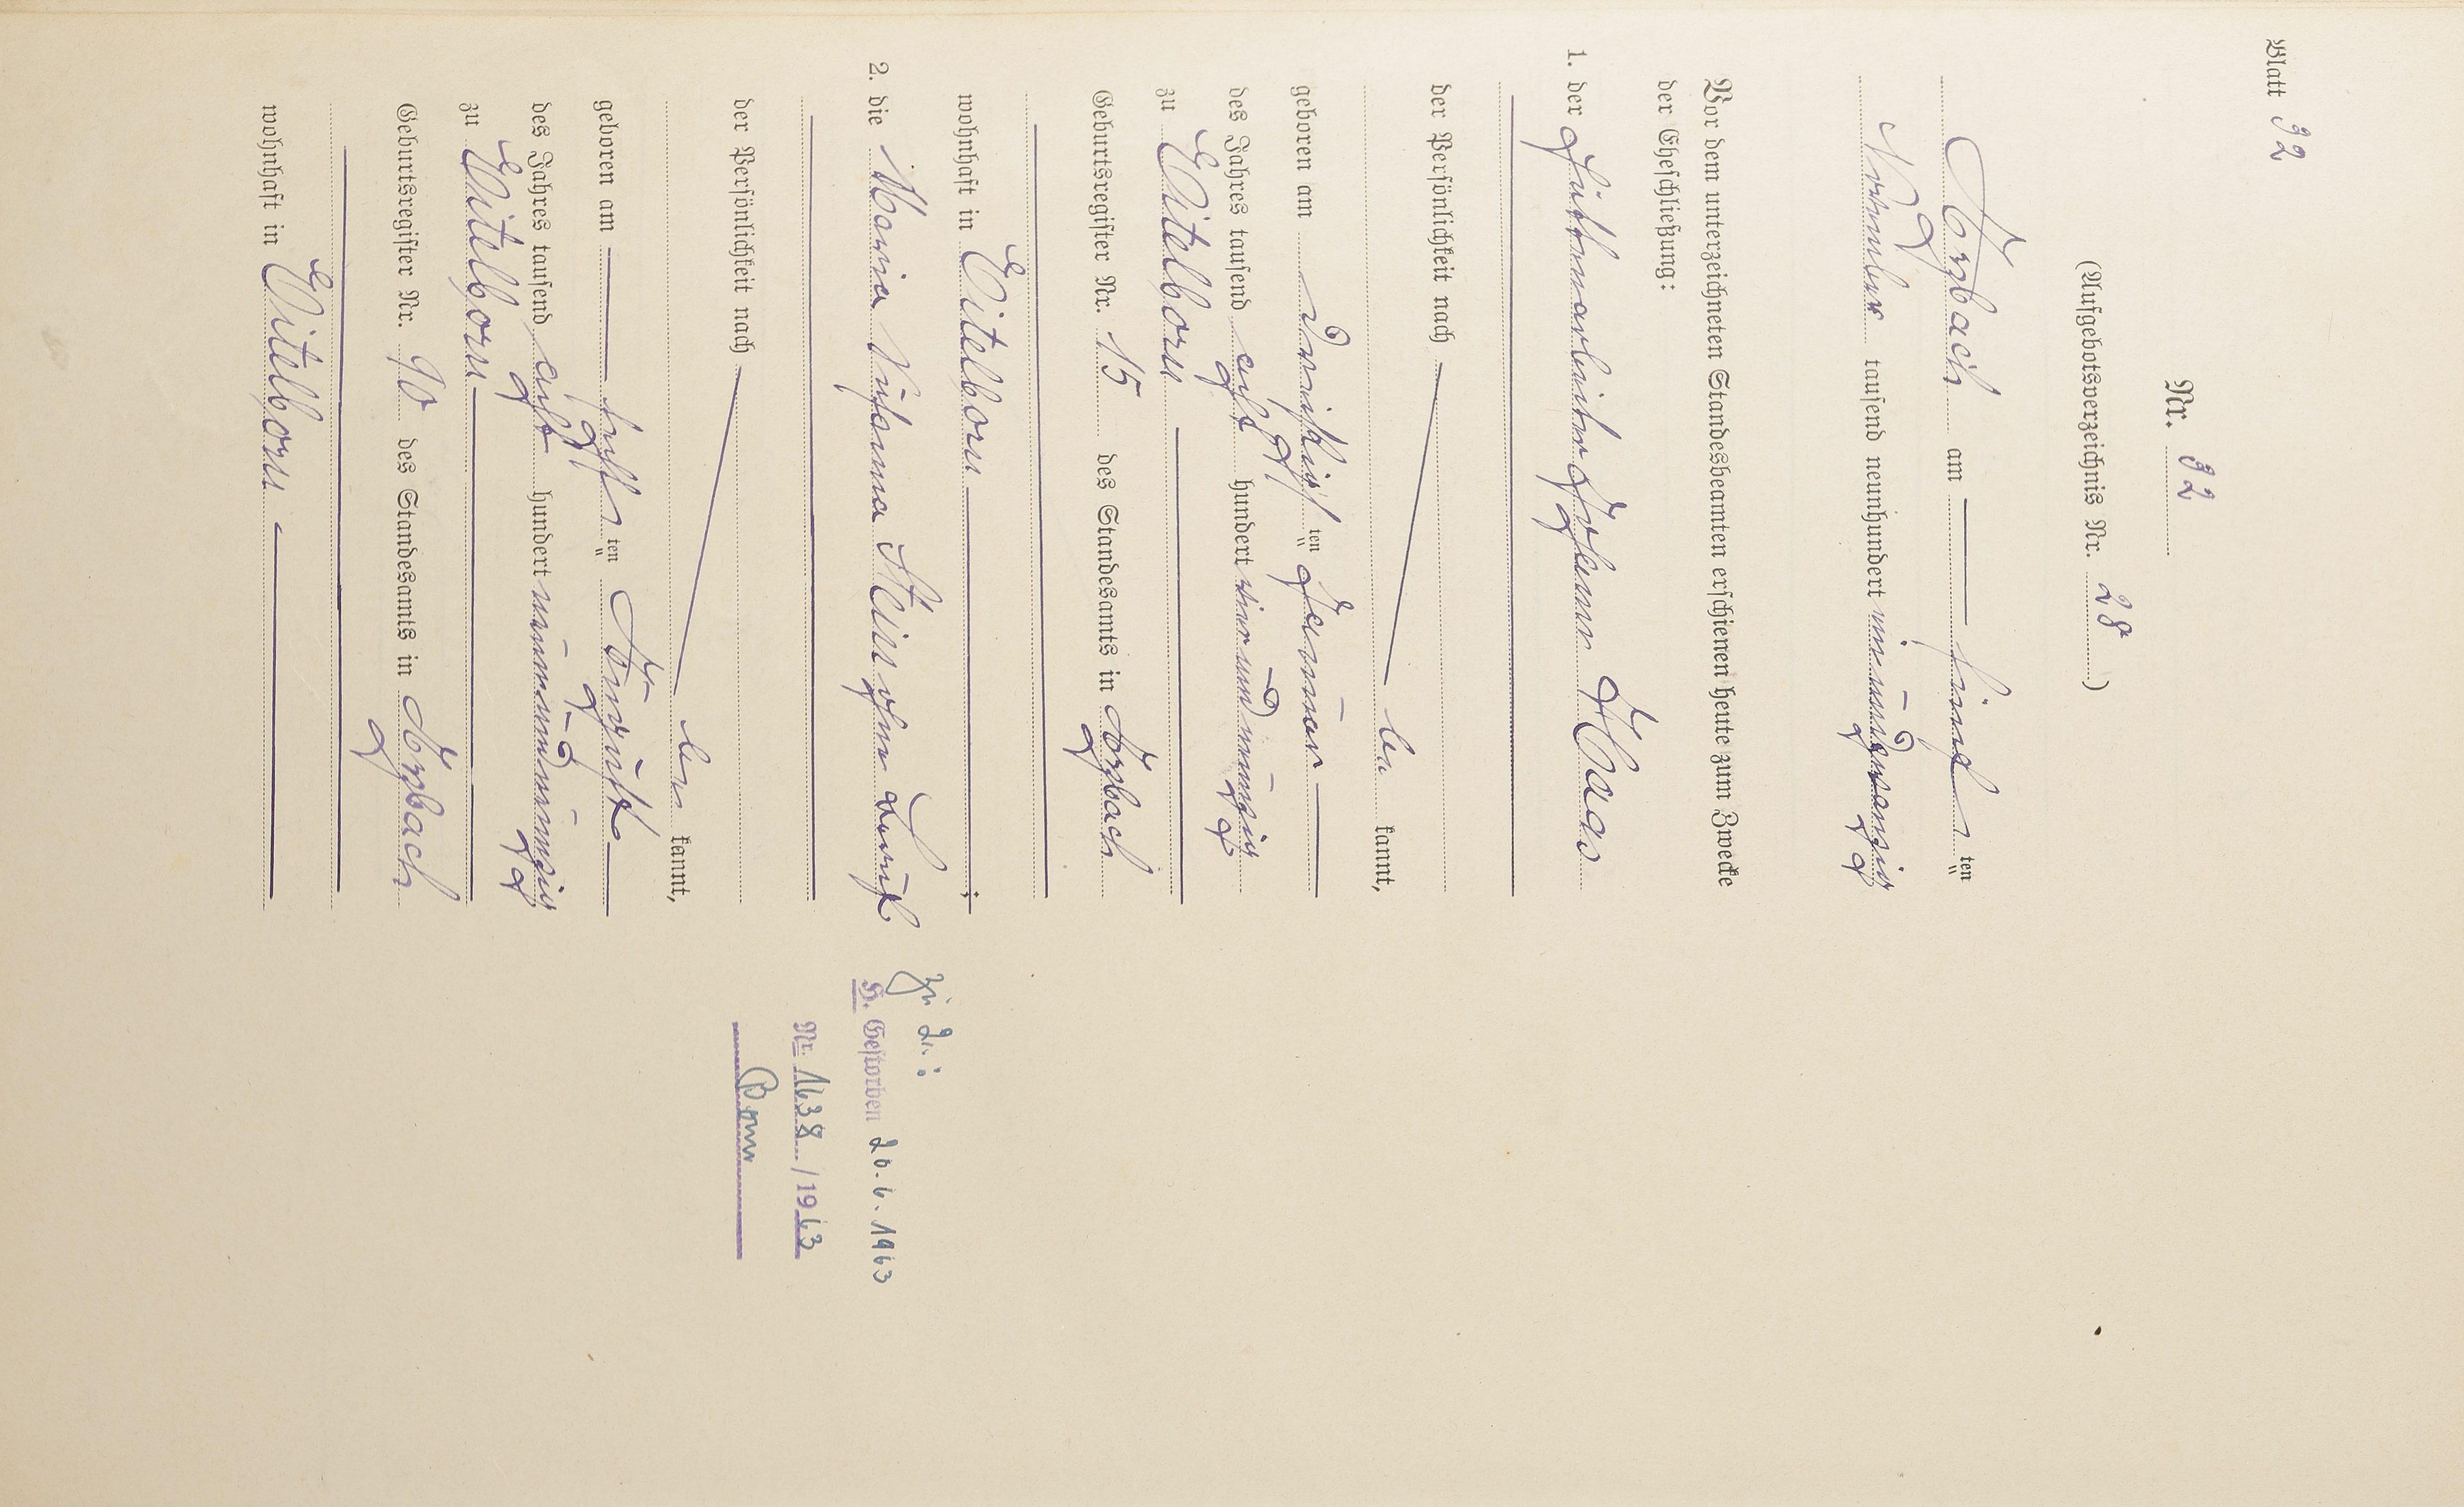 Blatt 32
Nr. 32
(Aufgebotsverzeichnis Nr. 28)
Arzbach am fünf ten
November tausend neunhundert einundzwanzig
Vor dem unterzeichneten Standesbeamten erschienen heute zum Zwecke
der Eheschließung:
1. der Hüttenarbeiter Johann Haas
der Persönlichkeit nach
be kannt,
geboren am dreißigs ten Januar
des Jahres tausend acht hundert vier und neunzig
zu Eitelborn
Geburtsregister Nr. 15 des Standesamts in Arzbach
wohnhaft in Eitelborn
;
2. die Maria Susanna Stein ohne Beruf
der Persönlichkeit nach
be kannt,
geboren am sechs ten August
des Jahres tausend acht hundert neun und neunzig
zu Eitelborn
Geburtsregister Nr. 90 des Standesamts in Arzbach
wohnhaft in Eitelborn
Zu 2.:
H. Gestorben 20.6.1963
Nr. 1638/1963
Bonn